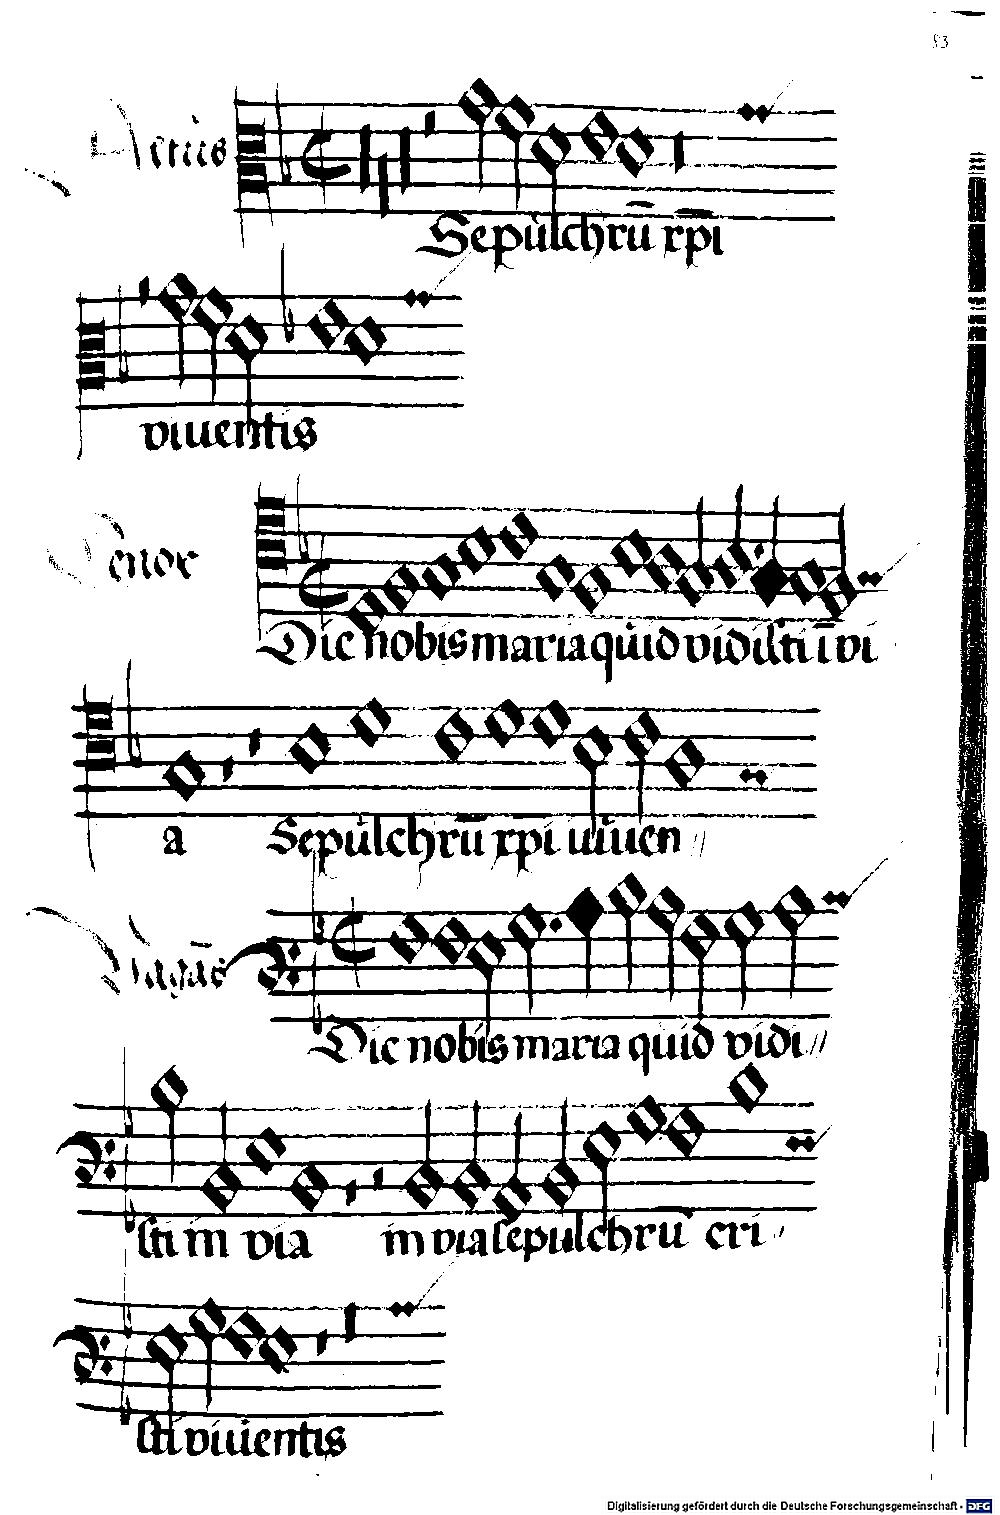 53
Altus
Sepulchrū xpi
viuentis
Tenor
Dic nobis maria quid vidisti ī vi
a Sepulchrū xpi uiuen
Vagās
Dic nobis maria quid vidi
sti in via in via sepulchrū cri
sti viuientis
Digitalisierung gefördert durch die Deutsche Forschungsgemeinschaft - DFG